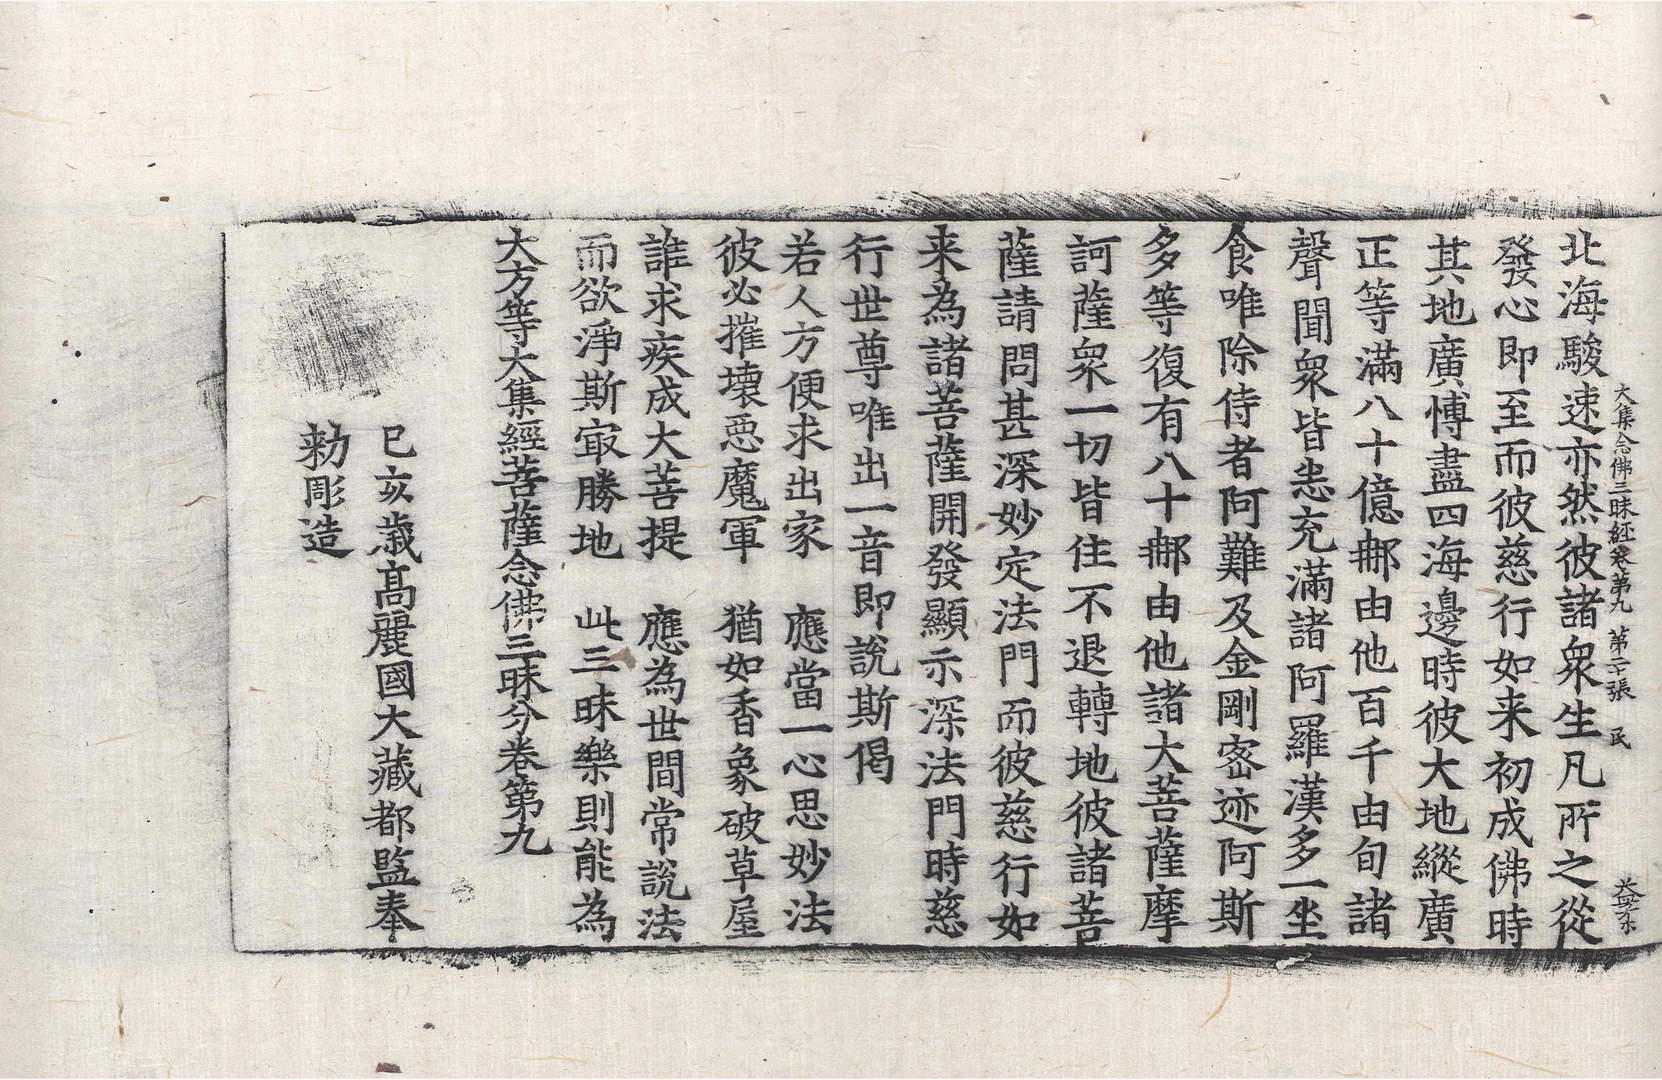 大集念佛三昧經卷第九 第二十張 民
北海駿速亦然彼諸衆生凡所之從
發心即至而彼慈行如来初成佛時
其地廣愽盡四海邊時彼大地縱廣
正等滿八十億䣯由他百千由旬諸
聲聞衆皆悉充滿諸阿羅漢多一坐
食唯除侍者阿難及金剛宻迹阿斯
多等復有八十䣯由他諸大菩薩摩
訶薩衆一切皆住不退轉地彼諸菩
薩請問甚深妙定法門而彼慈行如
来為諸菩薩開發顯示深法門時慈
行世尊唯出一音即說斯偈
若人方便求出家 應當一心思妙法
彼必摧壞惡魔軍 猶如香象破草屋
誰求疾成大菩提 應為世間常說法
而欲淨斯㝡勝地 此三昧樂則能為
大方等大集經菩薩念佛三昧分卷第九
巳亥歲髙麗國大藏都監奉
勑彫造